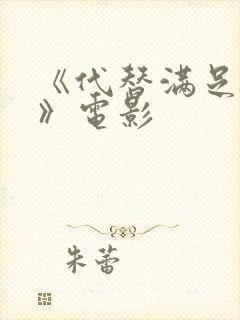 《代替满足
》电影
朱蕾